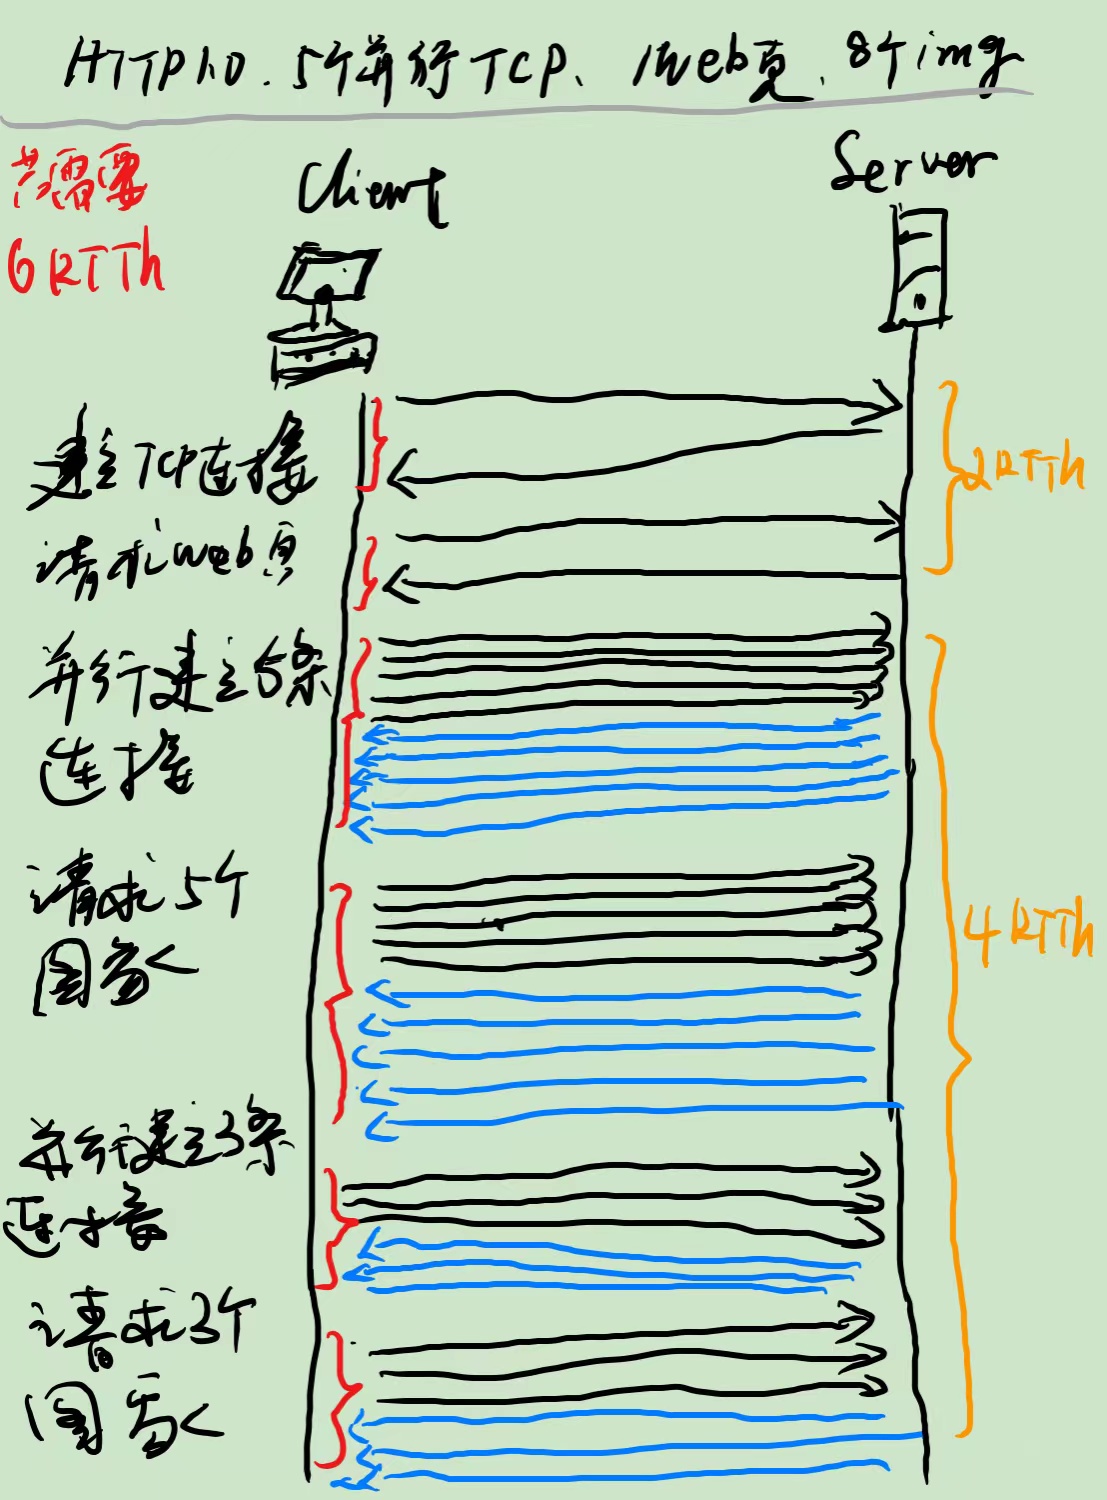 HTTP1.0.5个并行TCP、1Web页、8个img
共需要
6RTTh
Client
Server
建立TCP连接
2RTTh
请求web页
并行建立5条
连接
请求5个
图象
4RTTh
并行建立3条
连接
请求3个
图象